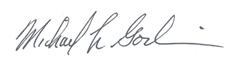 Michael L Gordon